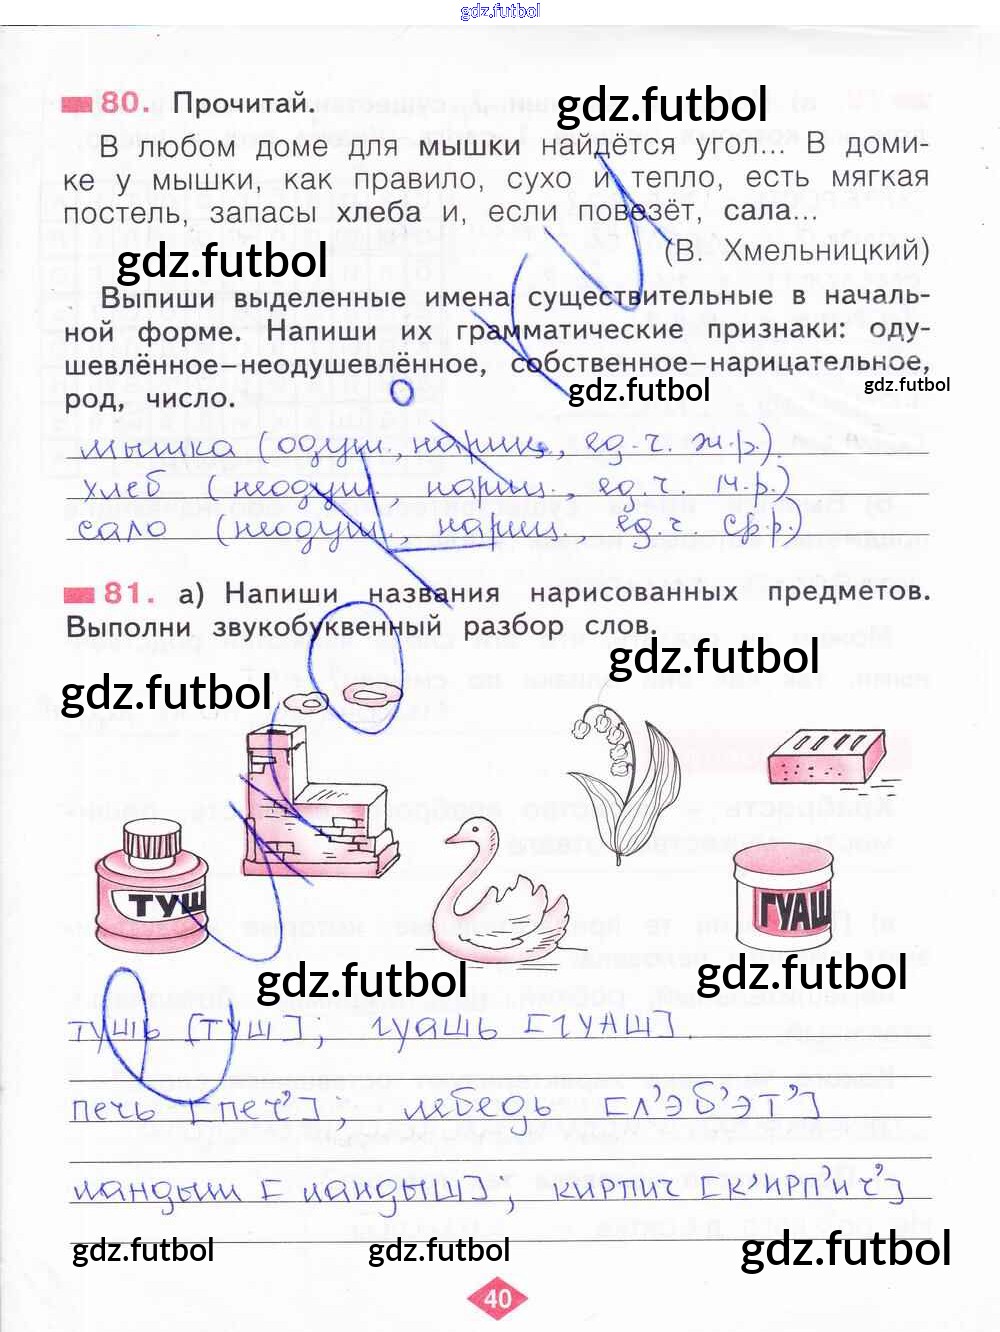 gdz.futbol
80. Прочитай.
gdz.futbol
В любом доме для мышки найдётся угол... В доми-
ке у мышки, как правило, сухо и тепло, есть мягкая
постель, запасы хлеба и, если повезёт, сала...
(В. Хмельницкий)
gdz.futbol
Выпиши выделенные имена существительные в началь-
ной форме. Напиши их грамматические признаки: оду-
шевлённое–неодушевлённое, собственное–нарицательное,
род, число.
gdz.futbol
gdz.futbol
мышка (одуш., нариц., ед.ч. ж.р.).
хлеб (неодуш., нариц., ед.ч. м.р.)
сало (неодуш., нариц., ед.ч ср.р.)
81. а) Напиши названия нарисованных предметов.
Выполни звукобуквенный разбор слов.
gdz.futbol
gdz.futbol
ТУШ
ГУАШ
gdz.futbol
gdz.futbol
тушь [ТУШ]; гуашь [ГУАШ].
печь [печ’], лебедь [Л’ЭБ’ЭТ’]
ландыш [ландыш]; кирпич [К’ИРП’ИЧ’]
gdz.futbol
gdz.futbol
gdz.futbol
40